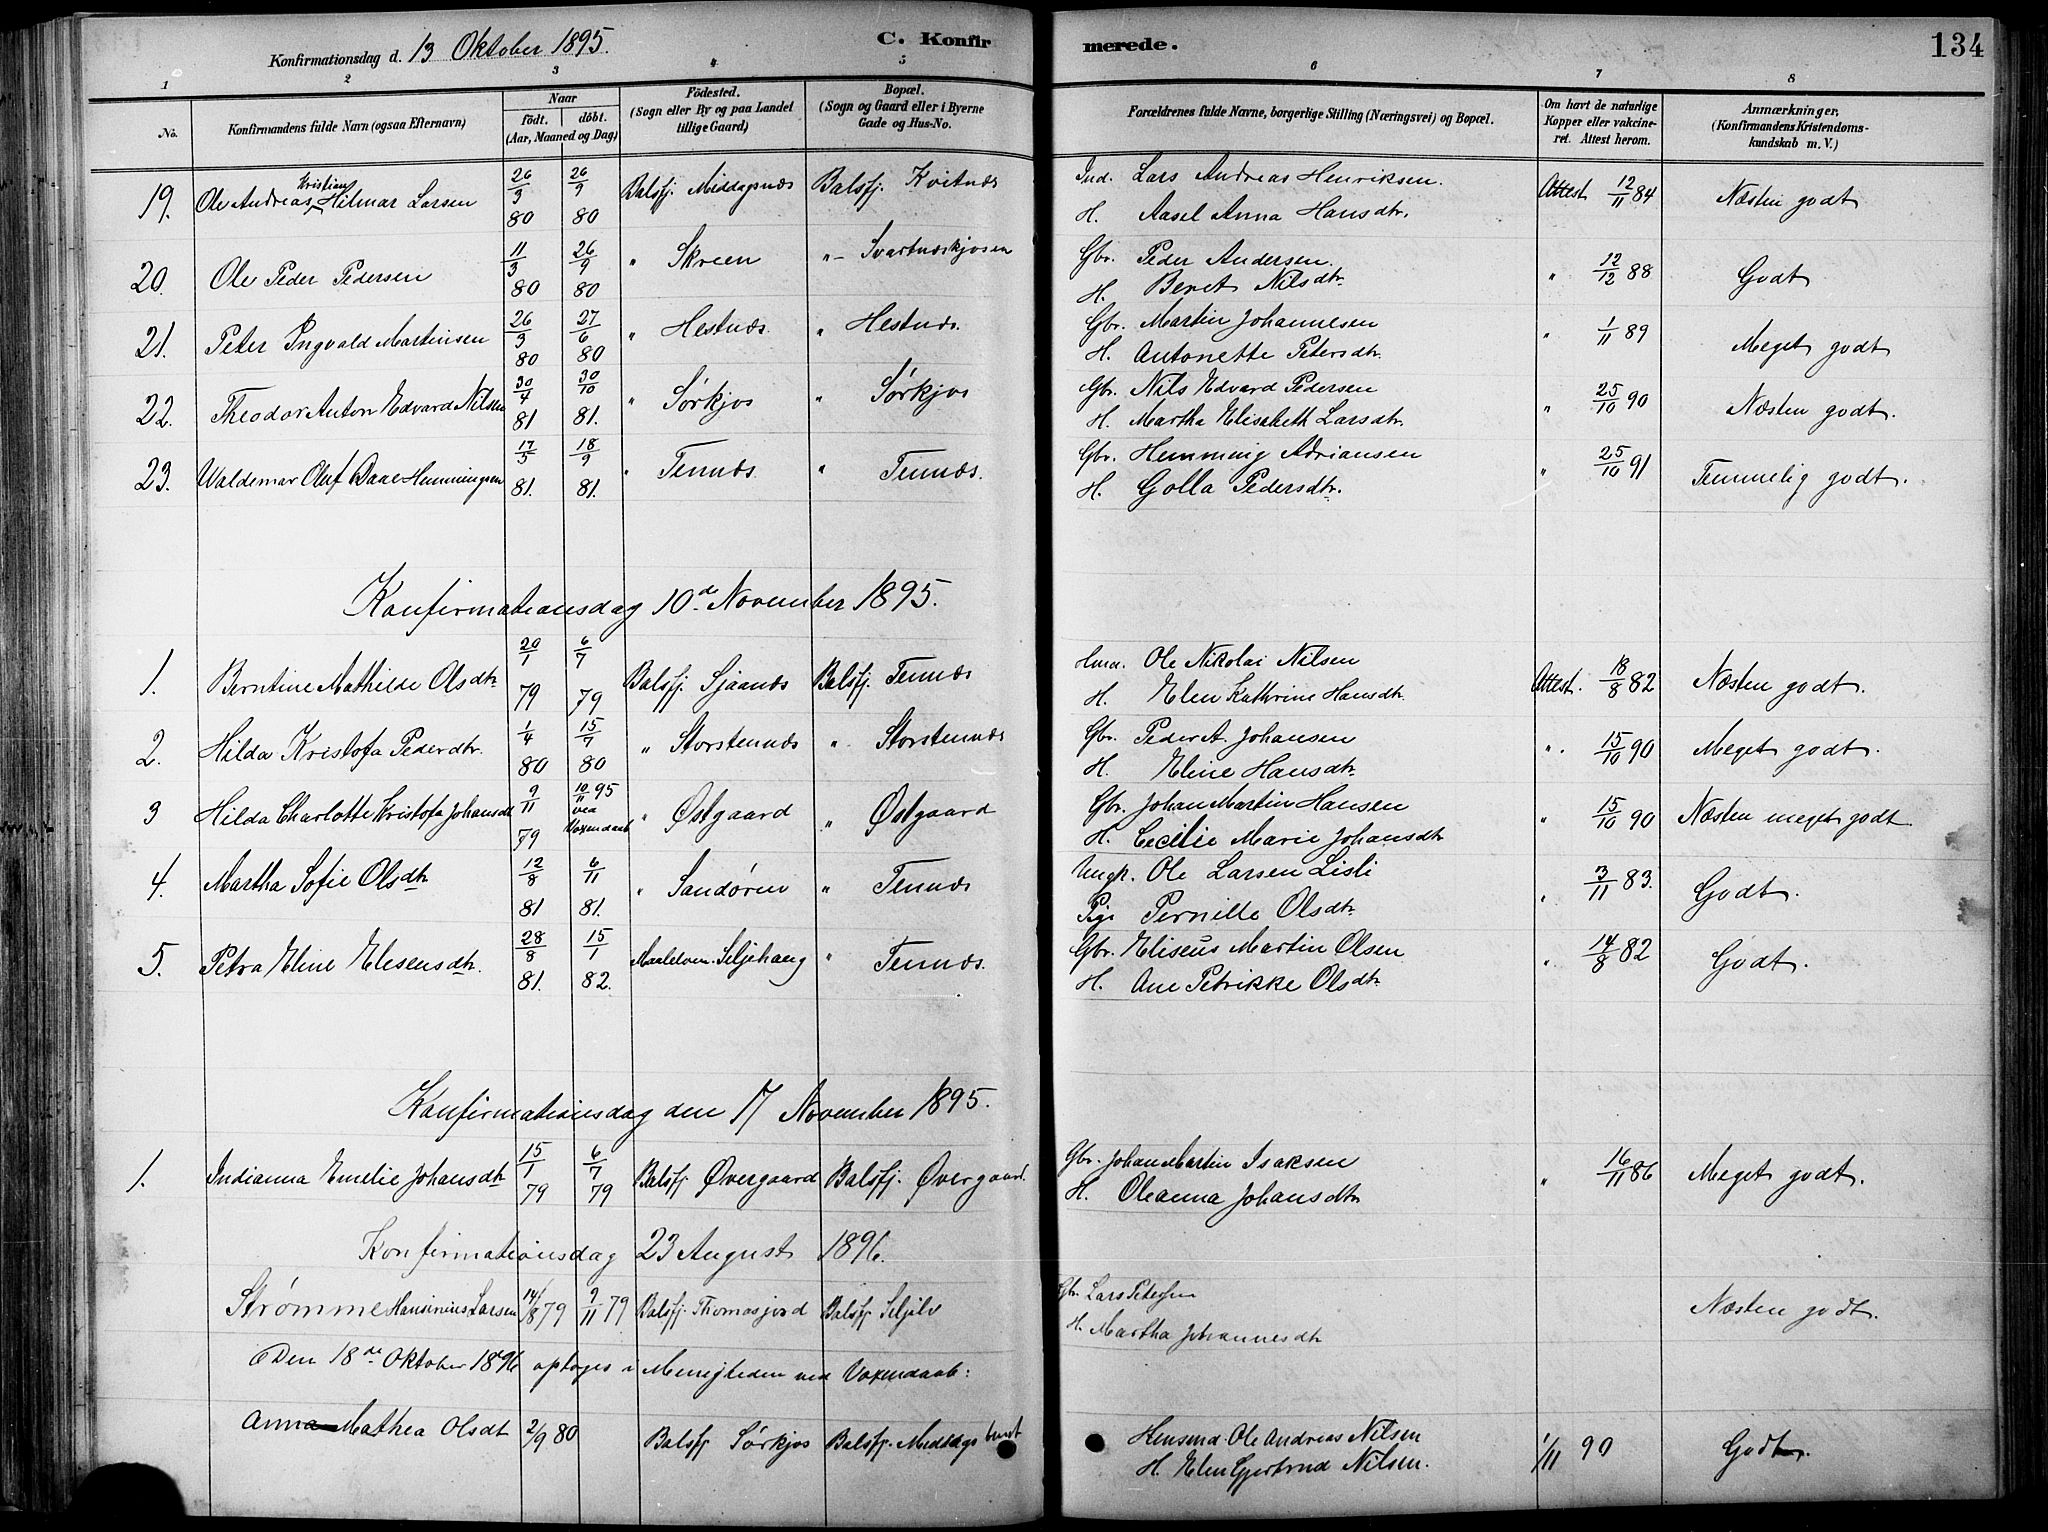 Konfirmationsdag d. 13 Oktober 1895. C. Konfir merede. 134
1 2 3 4 5 6 7 8
No. Konfirmandens fulde Navn (ogsaa Efternavn) Naar født. døbt. (Aar, Maaned og Dag) Fødested. (Sogn eller By og paa Landet tillige Gaard) Bopæl. (Sogn og Gaard eller i Byerne Gade og Hus-No. Forældrenes fulde Navne, borgerlige Stilling (Næringsvei) og Bopæl. Om havt de naturlige Kopper eller vakcineret. Attest herom. Anmærkninger, (Konfirmandens Kristendomskundskab m. V.)
19. Ole Andreas Kristian Hilmar Larsen 26/3 80 26/9 80 Balsfj. Middagsnæs Balsfj. Kvitnæs Ind. Lars Andreas Henriksen. Attest 12/11 84 Næsten godt
H. Aasel Anna Hansdtr.
20. Ole Peder Pedersen 11/3 80 26/9 80 " Skreen " Svartnæskjosen Gbr. Peder Andersen. " 12/12 88 Godt
H. Beret Nilsdtr.
21. Peter Ingvald Martinsen 26/3 80 27/6 80 " Hestnæs. " Hestnæs. Gbr. Martin Johannesen " 1/11 89 Meget godt
H. Antonette Petersdtr.
22. Theodor Anton Edvard Nilsen 30/4 81 30/10 81. " Sørkjos " Sørkjos Gbr. Nils Edvard Pedersen " 25/10 90 Næsten godt.
H. Martha Elisabeth Larsdtr.
23. Waldemar Oluf Daae Henningsen 17/5 81. 18/9 81. " Tennæs. " Tennæs. Gbr. Hemming Adriansen " 25/10 91 Temmelig godt.
H. Golla Pedersdtr.
Konfirmationsdag 10de November 1895.
1. Berntine Mathilde Olsdtr. 20/1 79 6/7 79 Balsfj. Sjaanæs Balsfj. Tennæs Hmd. Ole Nikolai Nilsen Attest. 18/8 82 Næsten godt.
H. Elen Kathrine Hansdtr.
2. Hilda Kristofa Pederdtr. 1/4 80 15/7 80 " Storstennæs " Storstennæs Gbr. Peder A. Johansen " 15/10 90 Meget godt.
H. Eline Hansdtr.
3 Hilda Charlotte Kristofa Johansdt 9/11 79 10/11 95 ved Voxendaab " Østgaard " Østgaard Gbr. Johan Martin Hansen " 15/10 90 Næsten meget godt.
H. Cecilie Marie Johansdtr.
4. Martha Sofie Olsdtr. 12/8 81 6/11 81. " Sandøren " Tennæs Ungk. Ole Larsen Lisli " 3/11 83. Godt.
Pige Pernille Olsdtr.
5. Petra Eline Elesensdtr. 28/8 81. 15/1 82. Maalelven. Seljehaug " Tennæs. Gbr. Eliseus Martin Olsen " 14/8 82 Godt.
H. Ane Petrikke Olsdtr.
Konfirmationsdag den 17 November 1895.
1. Indianna Emelie Johansdtr. 15/1 79 6/7 79 Balsfj Øvergaard Balsfj. Øvergaard. Gbr. Johan Martin Isaksen " 16/11 86 Meget godt.
H. Oleanna Johansdtr.
Konfirmationsdag 23 August 1896.
Strømme Hansinius Larsen 14/8 79 9/11 79 Balsfj. Thomasjord Balsfj Seljelv Gbr. Lars Petersen Næsten godt.
H. Martha Johannesdtr
Den 18de Oktober 1896 optages i Menigheden ved Voxendaab:
Anna Mathea Olsdt 2/9 80 Balsfj Sørkjos Balsfj. Middagsbugt Husmd. Ole Andreas Nilsen 1/11 90 Godt.
H. Elen Gjertrud Nilsen.